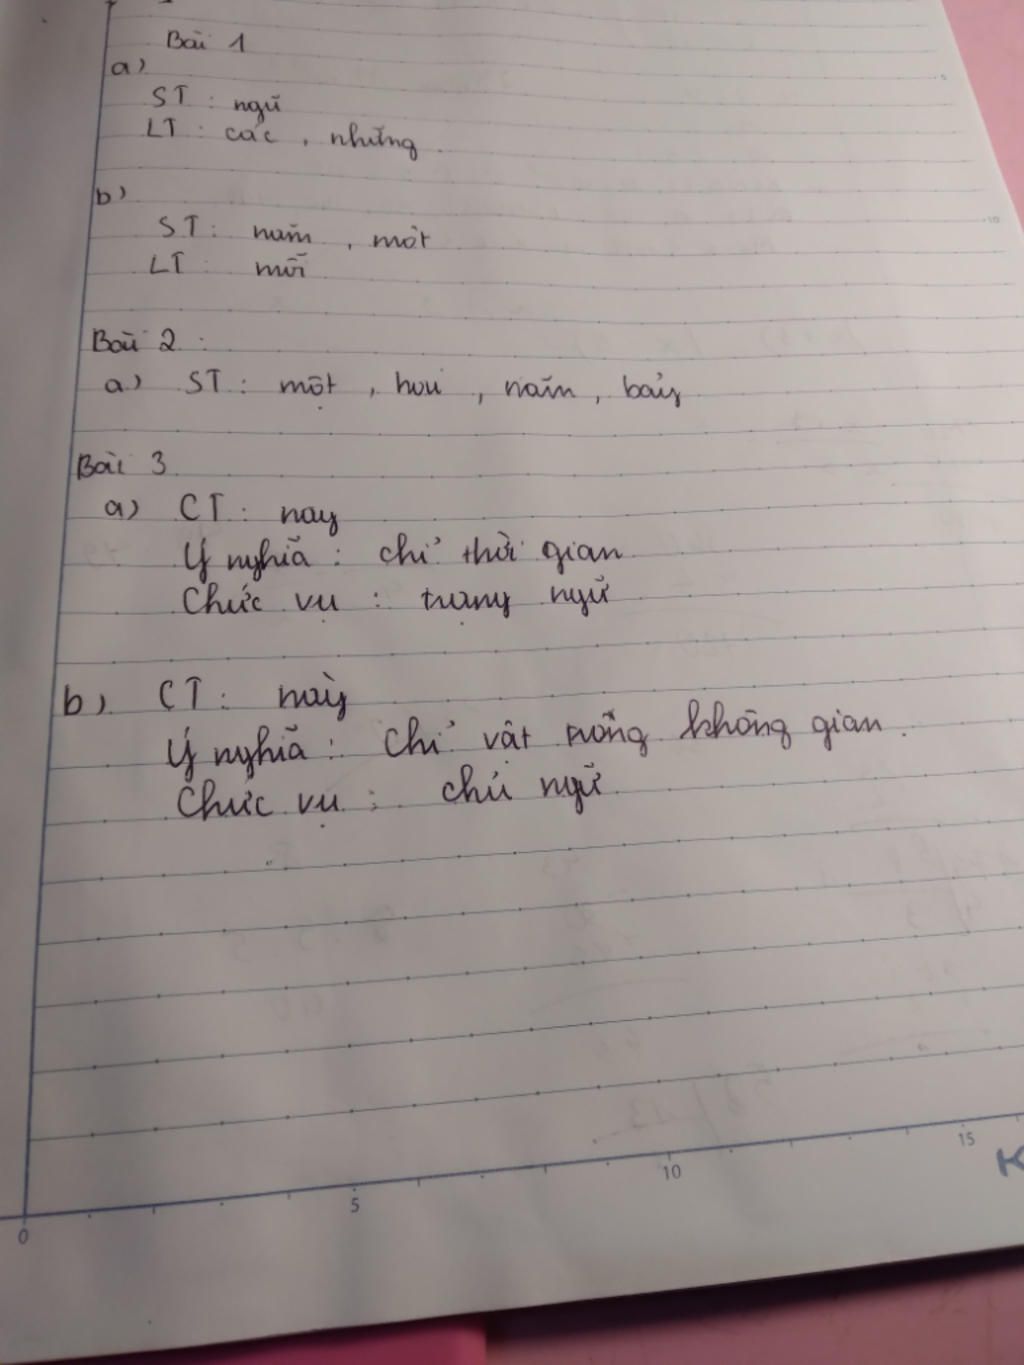 Bài 1
a)
ST : ngũ
LT : các , những
b)
ST : năm , một
LT : mỗi
Bài 2 :
a) ST : một , hai , năm , bảy
Bài 3
a) CT : nay
Ý nghĩa : chỉ thời gian
Chức vụ : trạng ngữ
b) CT : này
Ý nghĩa : Chỉ vật không gian .
Chức vụ : chủ ngữ
0 5 10 15
K